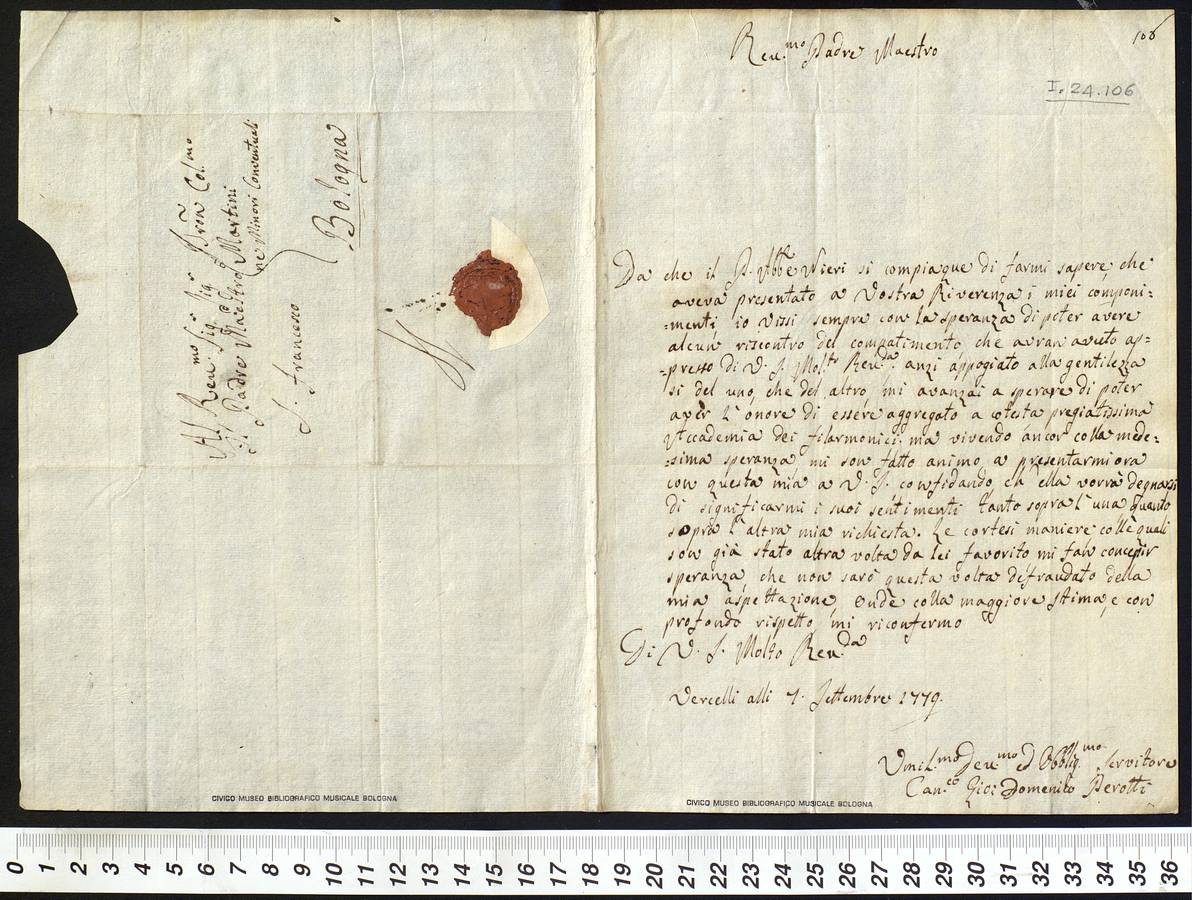 Al Rev.mo Sig.r Sig.r Pron Col.mo
Il Padre Maestro Martini
ne Minori Conventuali
S. Francesco
Bologna
Rev.mo Padre Maestro
106
I.24.106
Da che il P. Abbe Nieri si compiaque di farmi sapere, che
aveva presentato a Vostra Riverenza i miei componi=
=menti io vissi sempre con la speranza di poter avere
alcun riscontro del compatimento che avran avuto ap=
=presso di V. S. Molto Rev.da. anzi appogiato alla gentilezza
si del uno, che del altro, mi avanzai a sperare di poter
aver l'onore di essere aggregato a cotesta pregiatissima
Accademia dei filarmonici. ma vivendo ancor colla mede=
=sima speranza, mi son fatto animo, a presentarmi ora
con questa mia a V. S. confidando ch'ella vorrà degnarsi
di significarmi i suoi sentimenti tanto sopra l'una quanto
sopra l'altra mia richiesta. Le cortesi maniere colle quali
son già stato altra volta da lei favorito mi fan concepir
speranza, che non sarò questa volta defraudato della
mia aspettazione, onde colla maggiore stima, e con
profondo rispetto mi riconfermo
Di V. S. Molto Rev.da
Vercelli alli 7. Settembre 1779.
Umil.mo Dev.mo ed Obblig.mo Servitore
Can.co Gio: Domenico Perotti
CIVICO MUSEO BIBLIOGRAFICO MUSICALE BOLOGNA
CIVICO MUSEO BIBLIOGRAFICO MUSICALE BOLOGNA
0 1 2 3 4 5 6 7 8 9 10 11 12 13 14 15 16 17 18 19 20 21 22 23 24 25 26 27 28 29 30 31 32 33 34 35 36